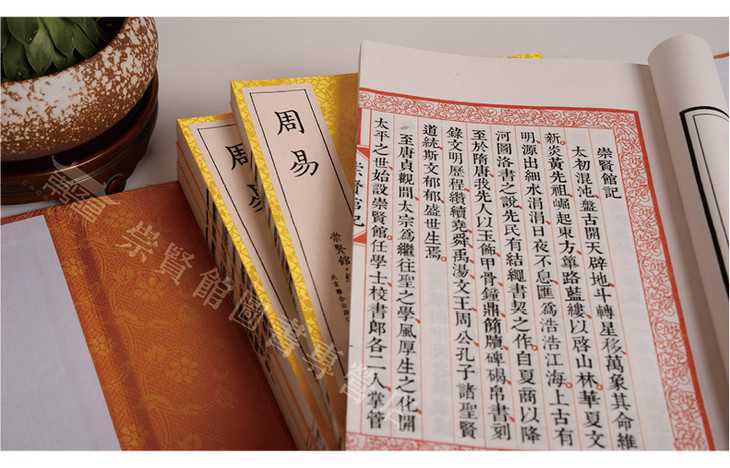 崇賢館記
太初混沌盤古開天辟地斗轉星移萬象其命維
新炎黃先祖崛起東方篳路藍縷以啓山林華夏文
明源出細水涓涓日夜不息匯爲浩浩江海上古有
河圖洛書之說先民有結繩書契之作自夏商以降
至於隋唐我先人以玉飾甲骨鐘鼎簡牘碑碣帛書刻
錄文明歷程纘續堯舜禹湯文王周公孔子諸聖賢
道統斯文郁郁盛世生焉
至唐貞觀間太宗爲繼往聖之學風厚生之化開
太平之世始設崇賢館任學士校書郎各二人掌管
崇賢館記
周易
崇賢館
周易
崇賢館圖書專營店